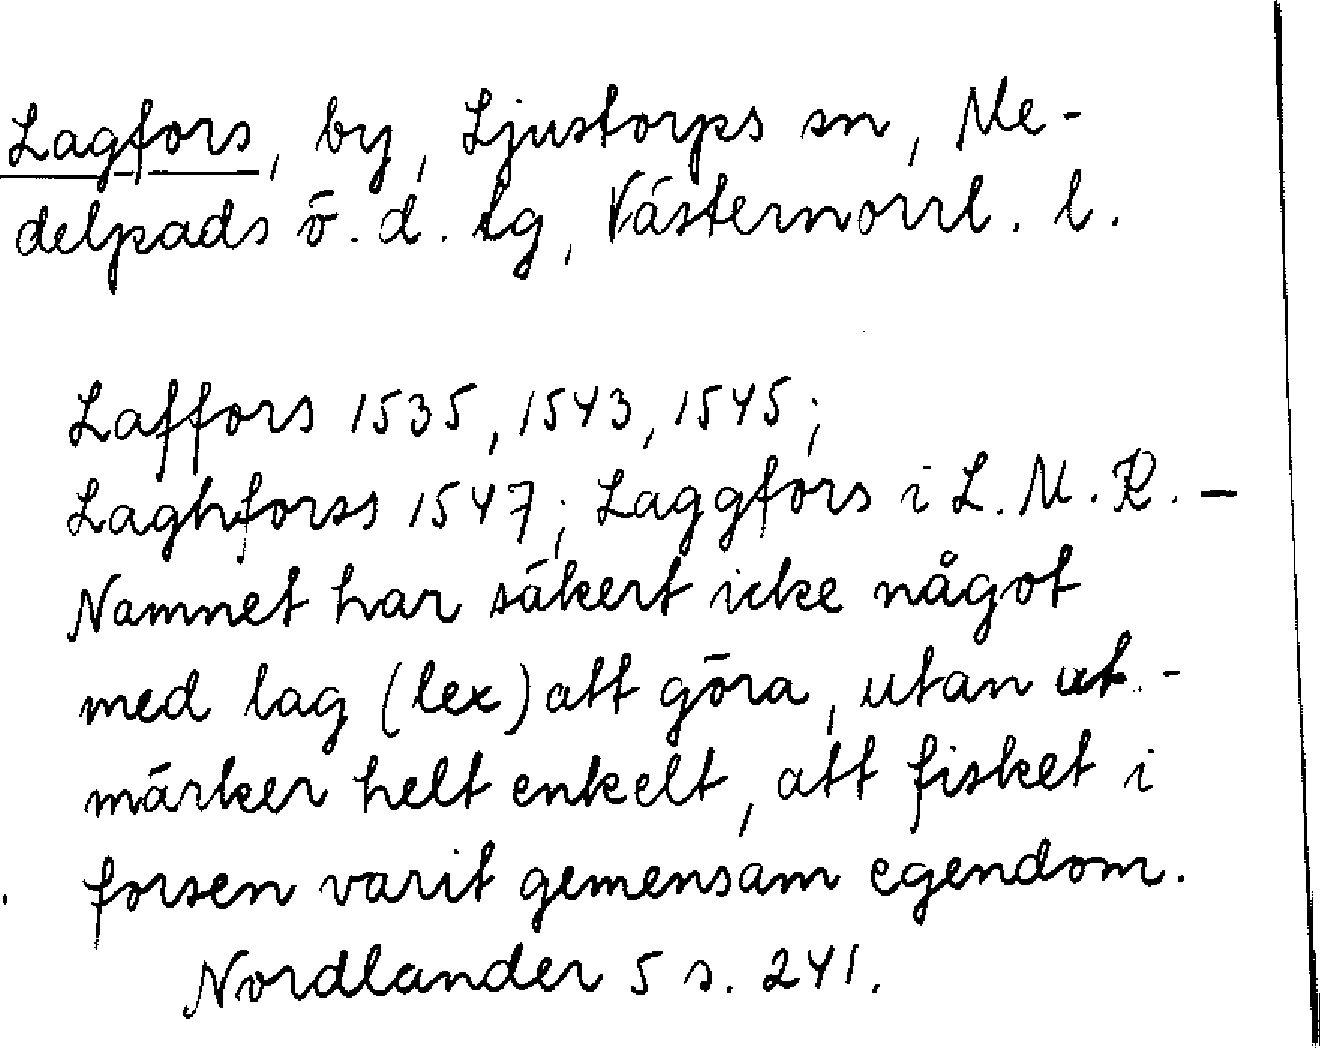 Lagfors, by, Ljustorps sn, Me-
delpads ö. d. tg, Västernorrl. l.
Laffors 1535, 1543, 1545;
Laghforss 1547; Laggfors i L. M. R. –
Namnet har säkert icke något
med lag (lex) att göra, utan ut-
märker helt enkelt, att fisket i
forsen varit gemensam egendom.
Nordlander 5 s. 241.